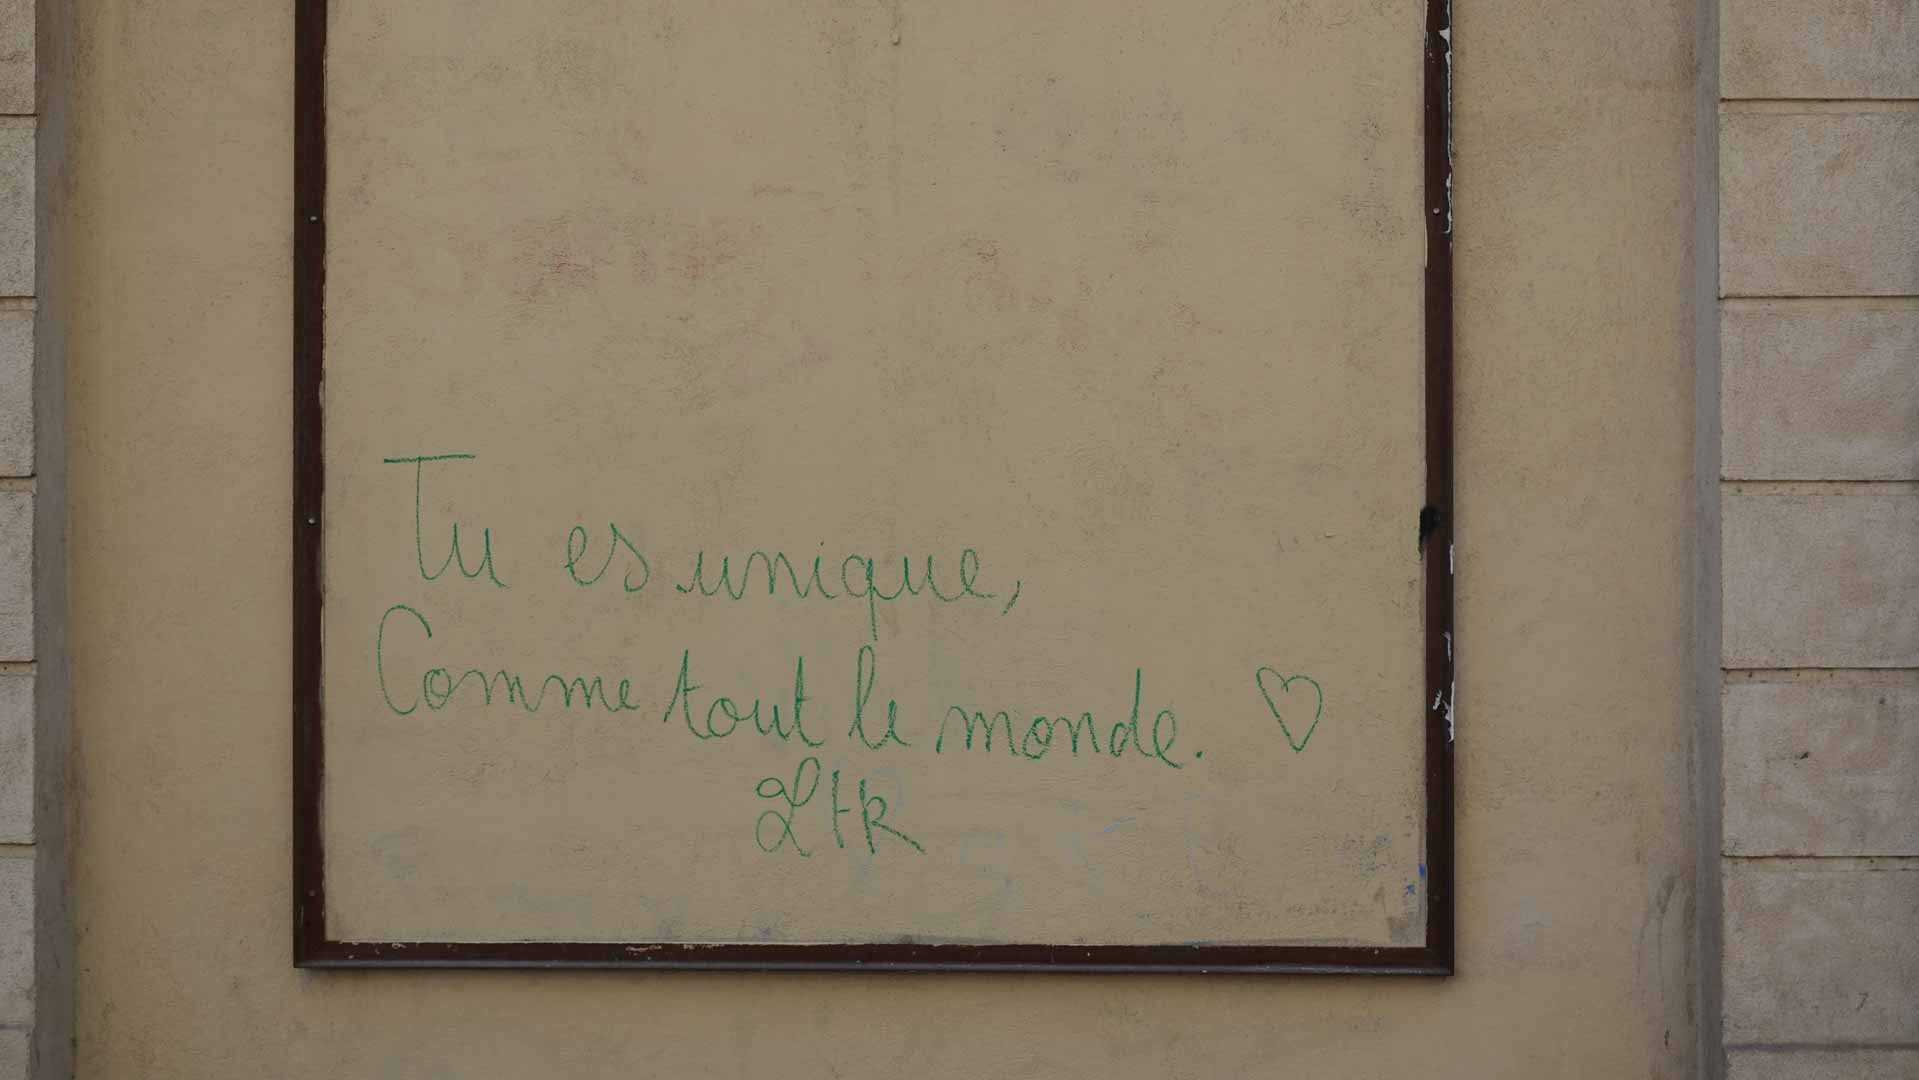 Tu es unique,
Comme tout le monde. ♡
LtR